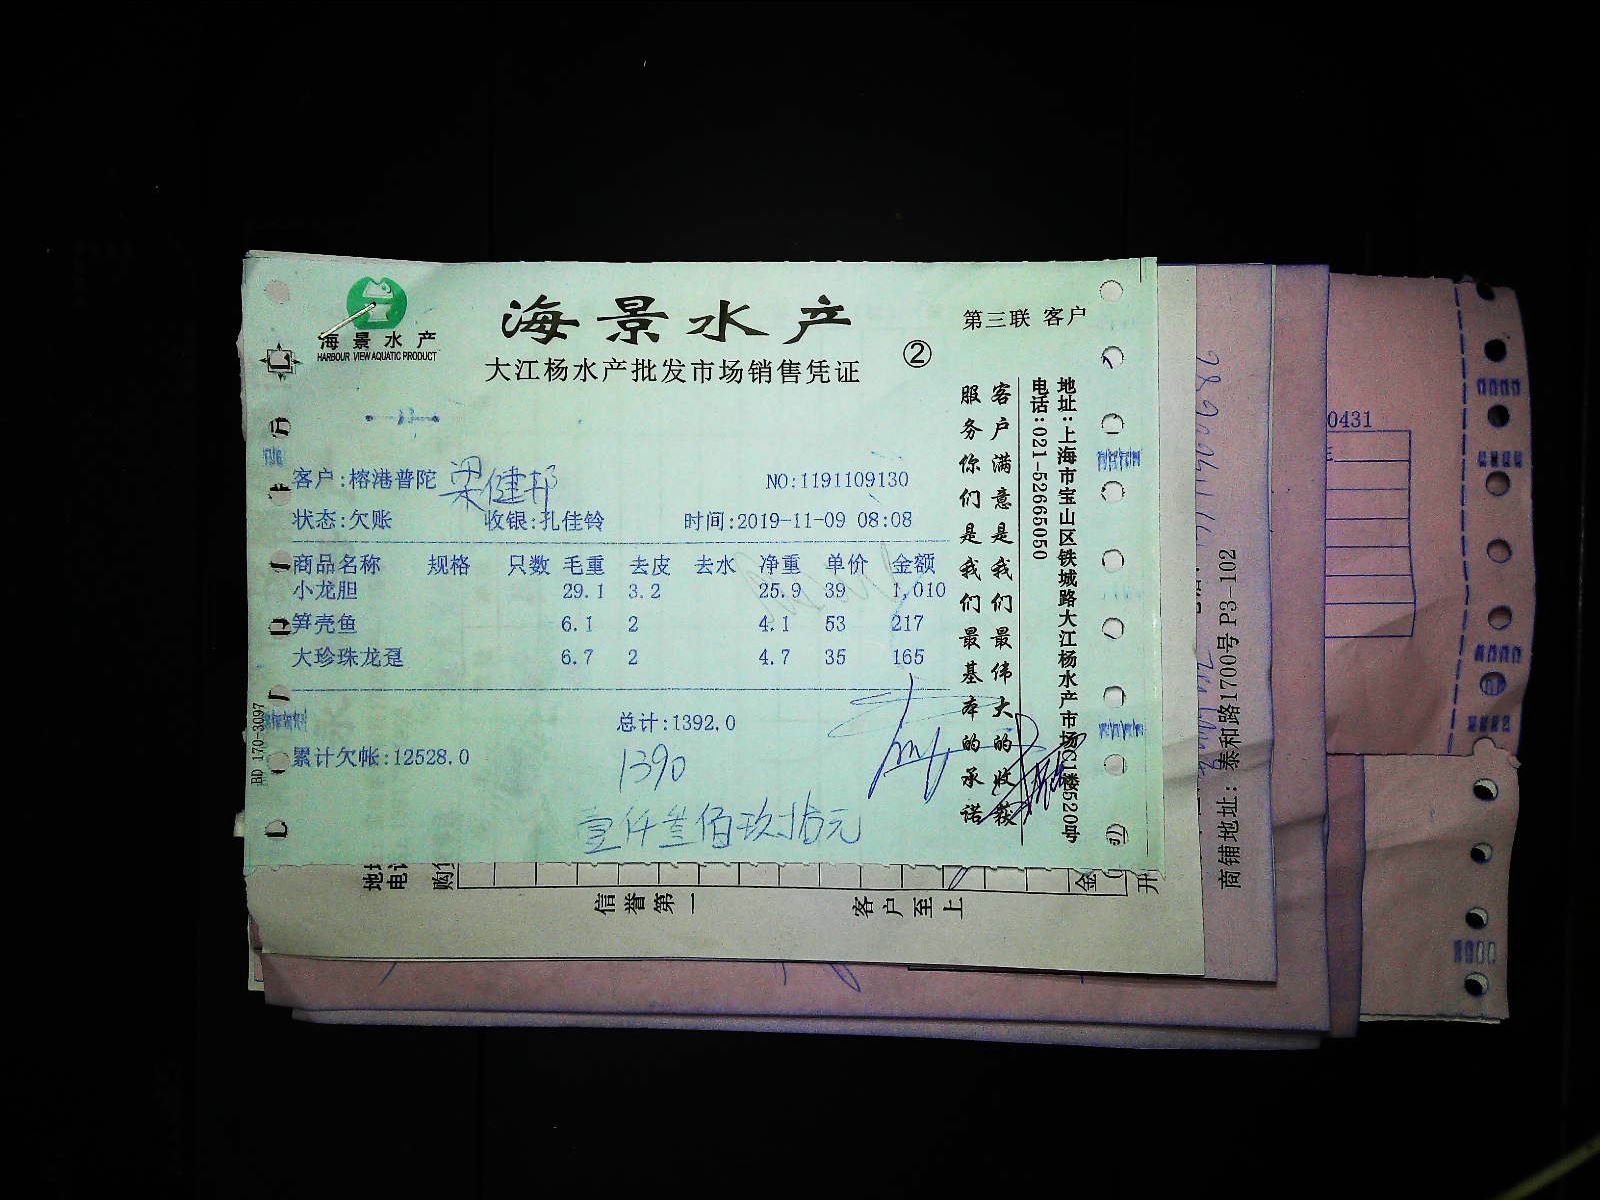 海景水产
HARBOUR VIEW AQUATIC PRODUCT
海景水产
第三联 客户
大江杨水产批发市场销售凭证
②
客户:榕港普陀 梁健邦
NO:1191109130
状态:欠账 收银:孔佳铃 时间:2019-11-09 08:08
商品名称 规格 只数 毛重 去皮 去水 净重 单价 金额
小龙胆 29.1 3.2 25.9 39 1,010
笋壳鱼 6.1 2 4.1 53 217
大珍珠龙趸 6.7 2 4.7 35 165
总计:1392.0
累计欠帐:12528.0
1390
壹仟叁佰玖拾元
客户满意是我们最伟大的收获
服务你们是我们最基本的承诺
地址:上海市宝山区铁城路大江杨水产市场C1楼520号
电话:021-52665050
BD 170-3097
地
电
购
金
开
信誉第一
客户至上
商铺地址:泰和路1700号 P3-102
0431